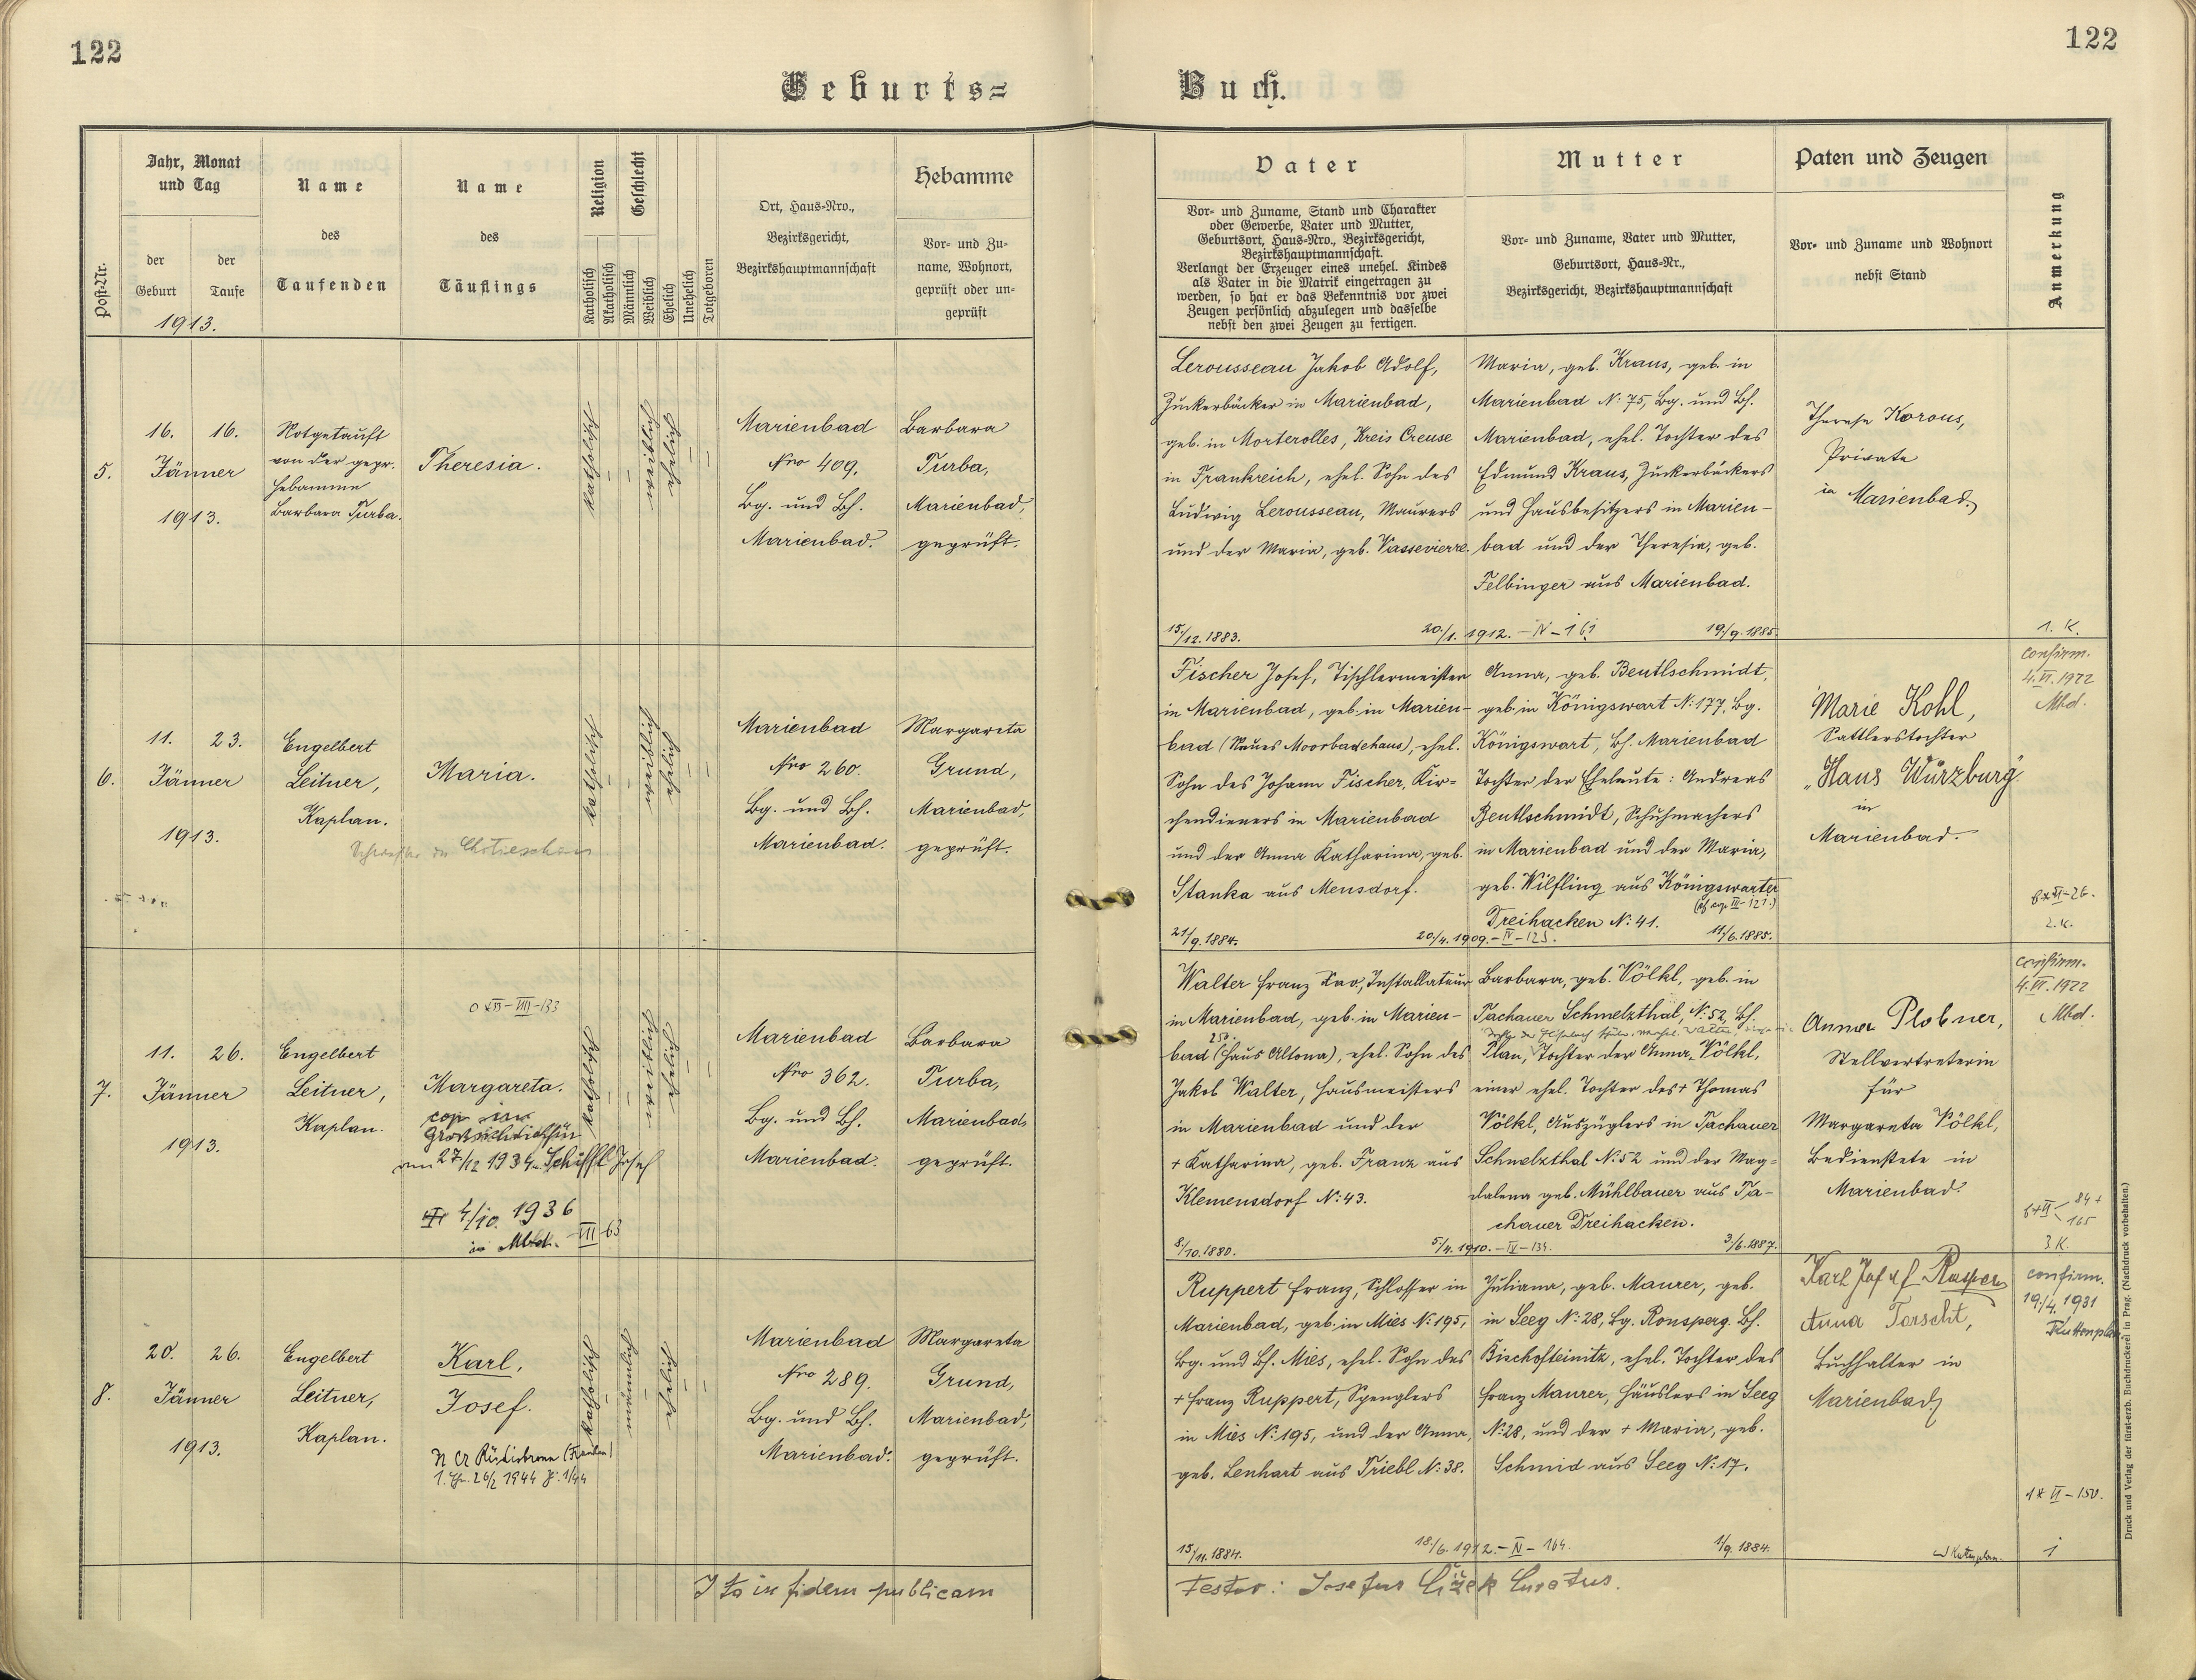 122
122
Geburts=
Buch.
Post-Nr.
Jahr, Monat
und Tag
der
Geburt
der
Taufe
1913.
Name
des
Taufenden
Name
des
Täuflings
Religion
Katholisch
Akatholisch
Geschlecht
Männlich
Weiblich
Ehelich
Unehelich
Totgeboren
Ort, Haus-Nro.,
Bezirksgericht,
Bezirkshauptmannschaft
Hebamme
Vor- und Zu-
name, Wohnort,
geprüft oder un-
geprüft
Vater
Vor- und Zuname, Stand und Charakter
oder Gewerbe, Vater und Mutter,
Geburtsort, Haus-Nro., Bezirksgericht,
Bezirkshauptmannschaft.
Verlangt der Erzeuger eines unehel. Kindes
als Vater in die Matrik eingetragen zu
werden, so hat er das Bekenntnis vor zwei
Zeugen persönlich abzulegen und dasselbe
nebst den zwei Zeugen zu fertigen.
Mutter
Vor- und Zuname, Vater und Mutter,
Geburtsort, Haus-Nr.,
Bezirksgericht, Bezirkshauptmannschaft
Paten und Zeugen
Vor- und Zuname und Wohnort
nebst Stand
Anmerkung
5.
16. 16.
Jänner
1913.
Notgetauft
von der gepr.
Hebamme
Barbara Turba.
Theresia.
katholisch
weiblich
ehelich
Marienbad
Nro 409.
Bg. und Bh.
Marienbad.
Barbara
Turba,
Marienbad,
geprüft.
Lerousseau Jakob Adolf,
Zuckerbäcker in Marienbad,
geb. in Morterolles, Kreis Creuse
in Frankreich, ehel. Sohn des
Ludwig Lerousseau, Maurers
und der Maria, geb. Vassevierre.
15/12. 1883.
20./1. 1912. – IV – 161
Maria, geb. Kraus, geb. in
Marienbad N: 75, Bg. und Bh.
Marienbad, ehel. Tochter des
Edmund Kraus, Zuckerbäckers
und Hausbesitzers in Marien-
bad und der Theresia, geb.
Felbinger aus Marienbad.
19./9. 1885.
Therese Korous,
Private
in Marienbad.
1. K.
6.
11. 23.
Jänner
1913.
Engelbert
Leitner,
Kaplan.
Maria.
katholisch
weiblich
ehelich
Marienbad
Nro 260.
Bg. und Bh.
Marienbad.
Margareta
Grund,
Marienbad,
geprüft.
Fischer Josef, Tischlermeister
in Marienbad, geb. in Marien-
bad (Neues Moorbadehaus), ehel.
Sohn des Johann Fischer, Kir=
chendieners in Marienbad
und der Anna Katharina, geb.
Stanka aus Mensdorf.
21/9. 1884.
20./4. 1909. – IV – 125.
Anna, geb. Beutlschmidt,
geb. in Königswart N: 177, Bg.
Königswart, Bh. Marienbad
Tochter der Eheleute: Andreas
Beutlschmidt, Schuhmachers
in Marienbad und der Maria,
geb. Wilfling aus Königswarter
Dreihacken N: 41.
11/6. 1885.
Marie Kohl,
Sattlerstochter
„Haus Würzburg"
in
Marienbad.
confirm.
4. VI. 1922
Mbd.
2. K.
7.
11. 26.
Jänner
1913.
Engelbert
Leitner,
Kaplan.
Margareta.
am 27/12 1934 Schiffl Josef
4/10. 1936
in Mbd. VII 63
katholisch
weiblich
ehelich
Marienbad
Nro 362.
Bg. und Bh.
Marienbad.
Barbara
Turba,
Marienbad,
geprüft.
Walter Franz Xav., Installateur
in Marienbad, geb. in Marien-
bad (Haus Altona), ehel. Sohn des
Jakob Walter, Hausmeisters
in Marienbad und der
+ Katharina, geb. Franz aus
Klemensdorf N: 43.
8/10. 1880.
5./4. 1910. – IV – 134.
Barbara, geb. Völkl, geb. in
Tachauer Schmelzthal, N: 52, Bh.
Plan, Tochter der Anna Völkl,
einer ehel. Tochter des + Thomas
Völkl, Auszüglers in Tachauer
Schmelzthal N: 52 und der Mag=
dalena geb. Mühlbauer aus Ta-
chauer Dreihacken.
3./6. 1887.
Anna Plobner,
Stellvertreterin
für
Margareta Völkl,
Bedienstete in
Marienbad.
confirm.
4. VI. 1922
Mbd.
3 K.
8.
20. 26.
Jänner
1913.
Engelbert
Leitner,
Kaplan.
Karl,
Josef.
katholisch
männlich
ehelich
Marienbad
Nro 289.
Bg. und Bh.
Marienbad.
Margareta
Grund,
Marienbad,
geprüft.
Ruppert Franz, Schlosser in
Marienbad, geb. in Mies N: 195,
Bg. und Bh. Mies, ehel. Sohn des
+ Franz Ruppert, Spenglers
in Mies N: 195, und der Anna,
geb. Lenhart aus Triebl N: 38.
15/11. 1884.
18./6. 1912. – IV – 164.
Juliana, geb. Maurer, geb.
in Seeg N: 28, Bg. Ronsperg. Bh.
Bischofteinitz, ehel. Tochter des
Franz Maurer, Häuslers in Seeg
N: 28, und der + Maria, geb.
Schmid aus Seeg N: 17.
1/9. 1884.
Karl Josef
Anna Torscht,
Buchhalter in
Marienbad
confirm.
19./4. 1931
Kuttenplan
1* VI – 150.
1
Ita in fidem publicam
testor: Josefus Čížek Curatus.
Druck und Verlag der fürst-erzb. Buchdruckerei in Prag. (Nachdruck vorbehalten.)